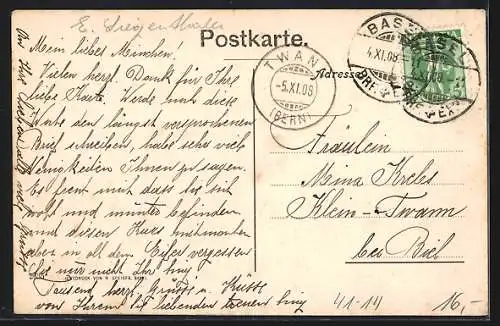 E. Siegenthaler
Postkarte.
Adresse
BASEL
4.XI.08
BASEL
XI.08
TWANN
-5.XI.08
(BERN)
Mein liebes Minchen!
Vielen herzl. Dank für Ihre
liebe Karte. Werde noch diese
Woche den längst versprochenen
Brief schreiben, habe sehr viel
Neuigkeiten Ihnen zu sagen.
Es freut mich dass Sie sich
wohl und munter befinden
und diesen Kurs
aber in all dem Eifer vergessen
Sie mir nicht Ihr
Tausend herzl. Gruss u. Küsse
von Ihrem Sie liebenden treuen
Fräulein
Mina Krebs
Klein-Twann
bei Biel
41-14
16,-